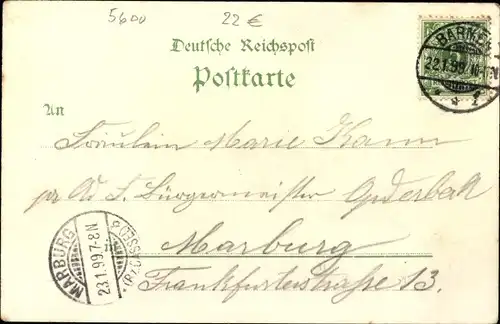 5600 22 €
Deutsche Reichspost
Postkarte
BARMEN
22.1.99
An
Fräulein Marie Kamm
Bürgermeister
in Marburg
Frankfurterstraße 13.
MARBURG
23.1.99.7-8N